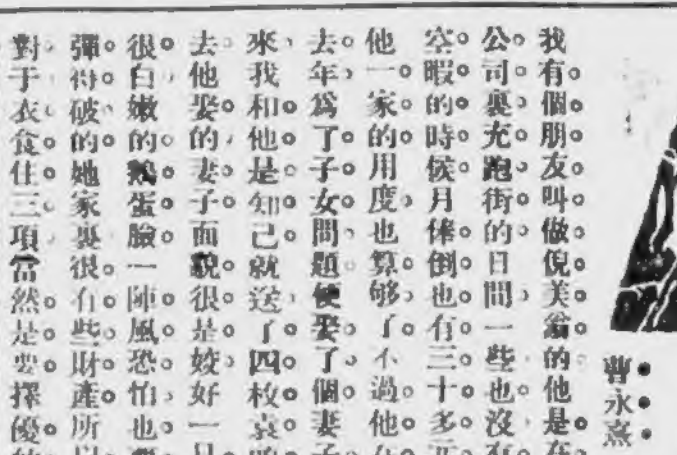 曹永熹
我有個朋友叫做倪美翁的他是在
公司裏充跑街的日間一些也沒有
空暇的時候月俸倒也有三十多元
他一家的用度也算够了不過他在
去年爲了子女問題便娶了個妻子
來我和他是知己就送了四枚袁頭
去他娶的妻子面貌很是姣好一
很白嫩的鵝蛋臉一陣風恐怕也
彈得破的她家裏很有些財產所以
對于衣食住三項當然是要擇優